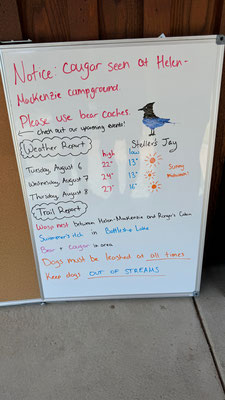 Notice: Cougar seen at Helen-
Mackenzie campground.
Please use bear caches.
← check out our upcoming events!
Weather Report
Steller's Jay
high low
Tuesday, August 6 22° 13°
Wednesday, August 7 24° 13°
Thursday, August 8 21° 16°
Sunny
Trail Report
Wasp nest between Helen-Mackenzie and Ranger Cabin
Swimmer's itch in Battleship Lake
Bear + Cougar in area
Dogs must be leashed at all times
Keep dogs OUT OF STREAMS